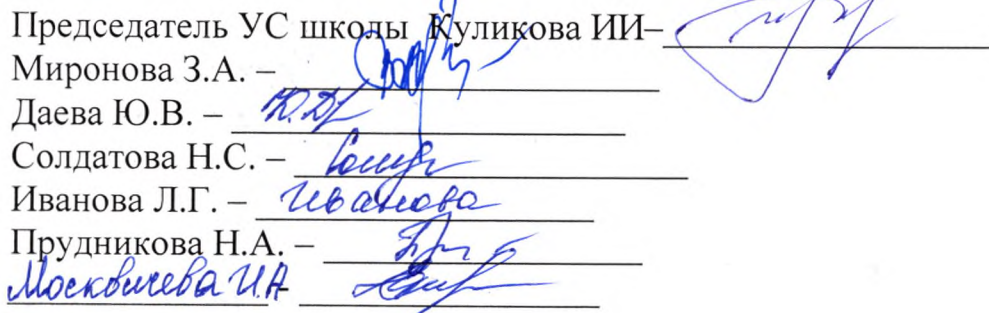 Председатель УС школы Куликова ИИ–
Миронова З.А. –
Даева Ю.В. – Ю.Д
Солдатова Н.С. –
Иванова Л.Г. – Иванова
Прудникова Н.А. –
Москвичева И.А –